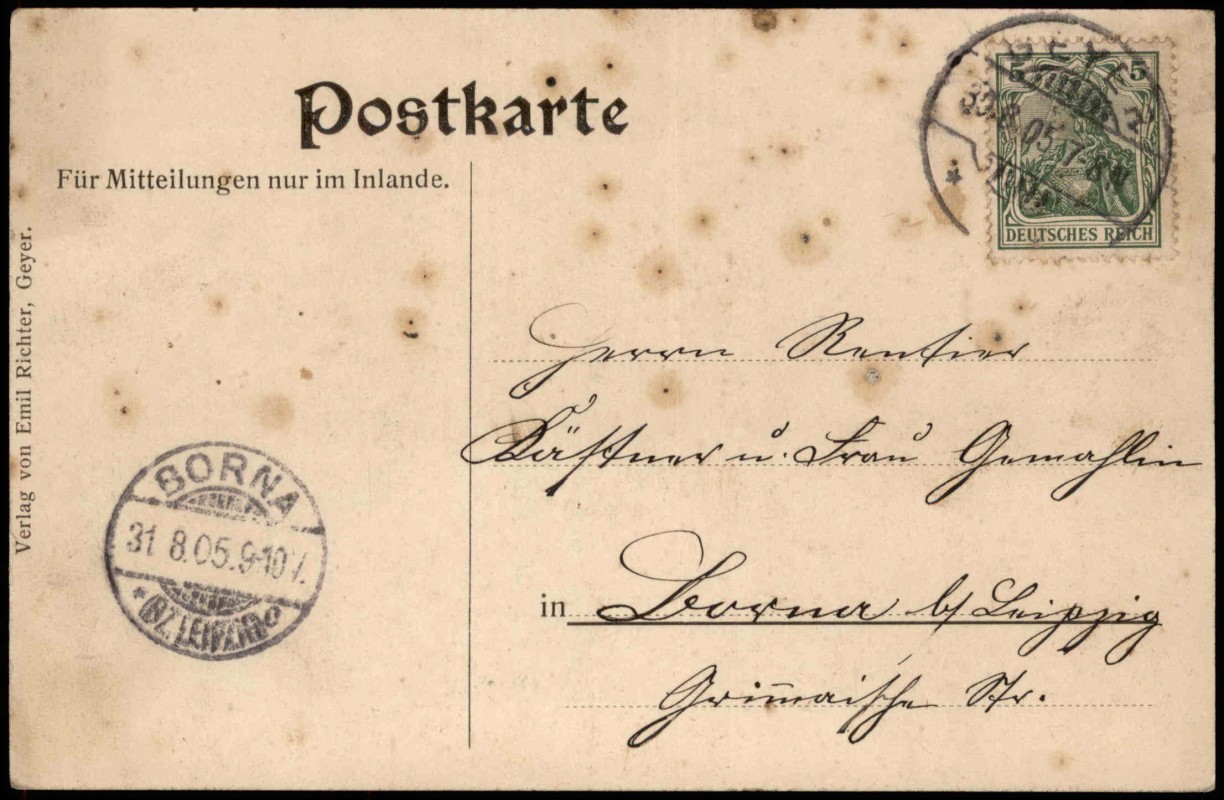 Postkarte
Für Mitteilungen nur im Inlande.
Verlag von Emil Richter, Geyer.
5 5
DEUTSCHES REICH
GEYER
8.05.7-8N
Herrn Rentier
Kästner u. Frau Gemahlin
in Borna b/ Leipzig
Grimmaische Str.
BORNA
31 8.05.9-10V.
* (BZ. LEIPZIG)